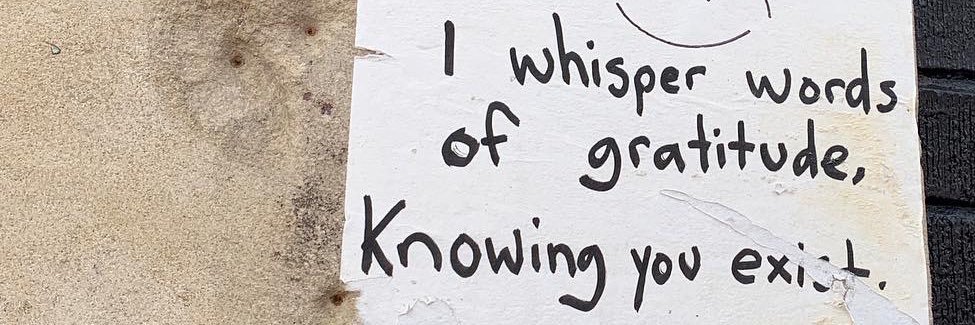 I whisper words
of gratitude,
Knowing you exist.